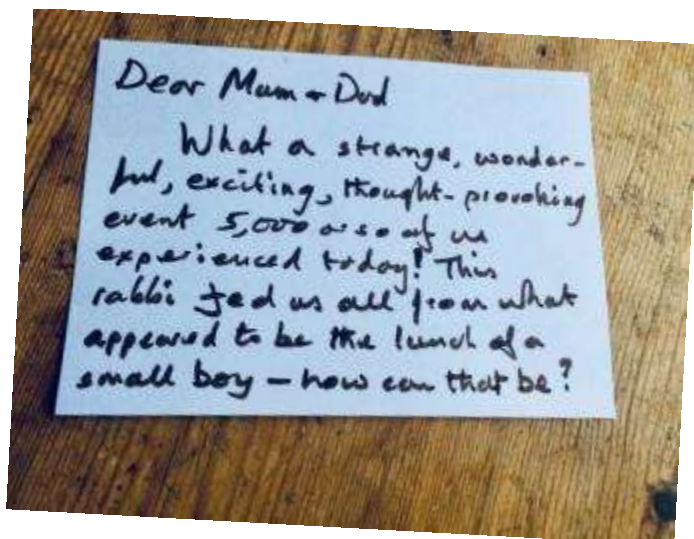 Dear Mum + Dad
What a strange, wonder-
ful, exciting, thought-provoking
event 5,000 or so of us
experienced today! This
rabbi fed us all from what
appeared to be the lunch of a
small boy – how can that be?